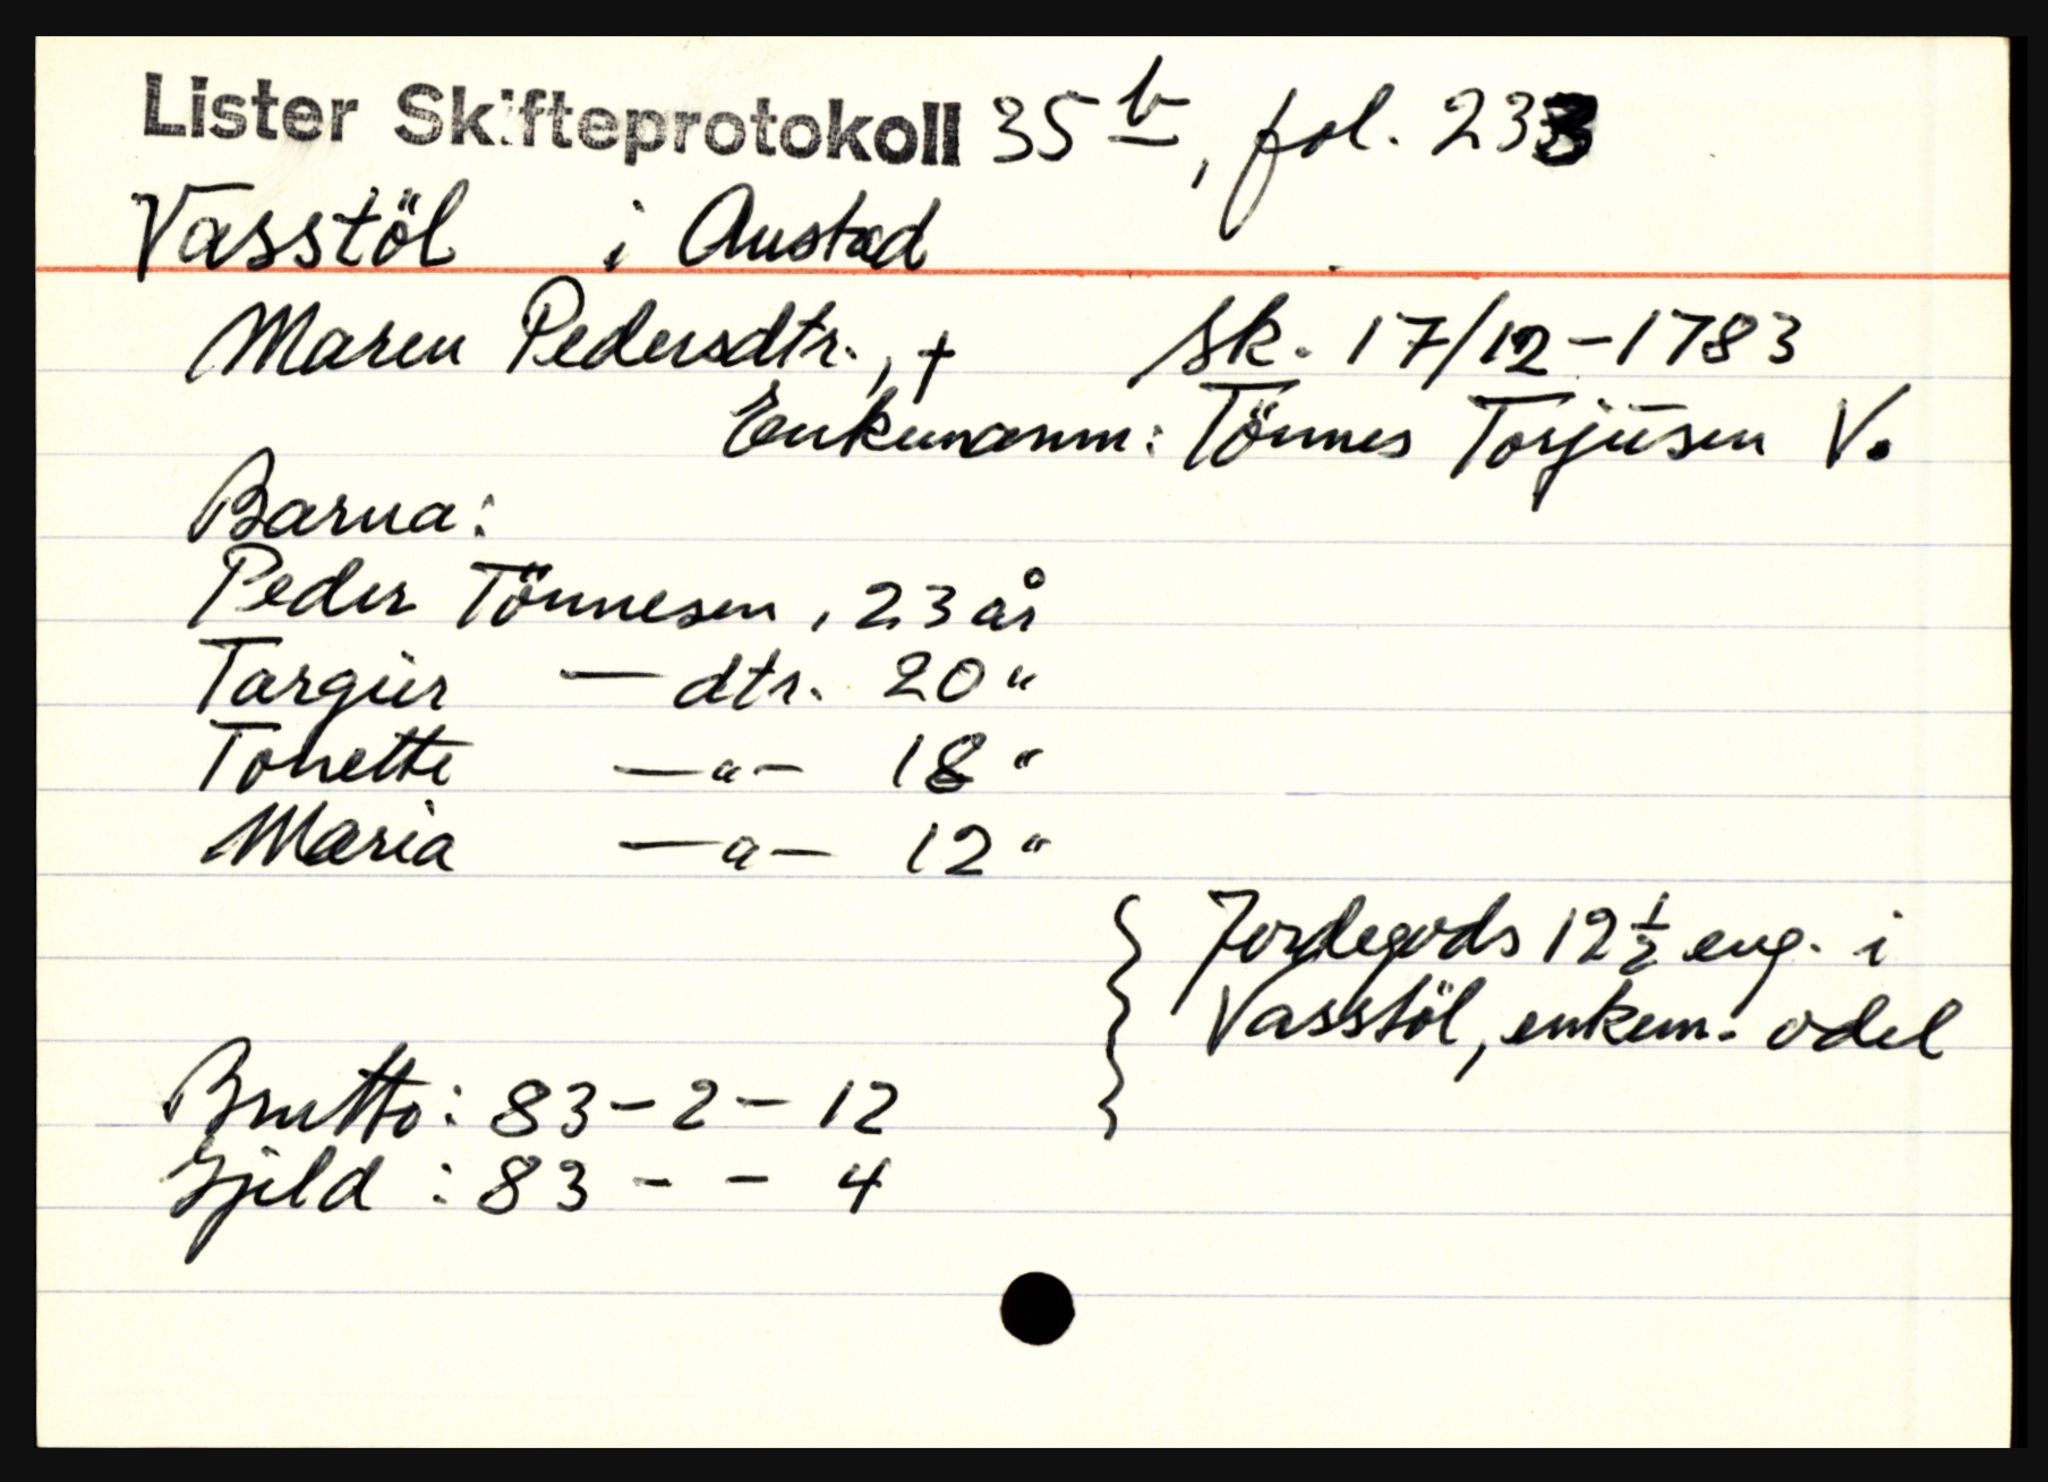 Lister Skifteprotokoll 35 b, fol. 233
Vasstöl i Austad
Maren Pedersdtr., + sk. 17/12-1783
Enkemann: Tönnes Torjusen V.
Barna:
Peder Tönnesen, 23 år
Targier — dtr. 20 "
Tonette — " — 18 "
Maria — " — 12 "
Jordegods 12 1/2 eng. i
Vasstöl, enkem. odel
Brutto: 83 - 2 - 12
Gjeld : 83 - - 4